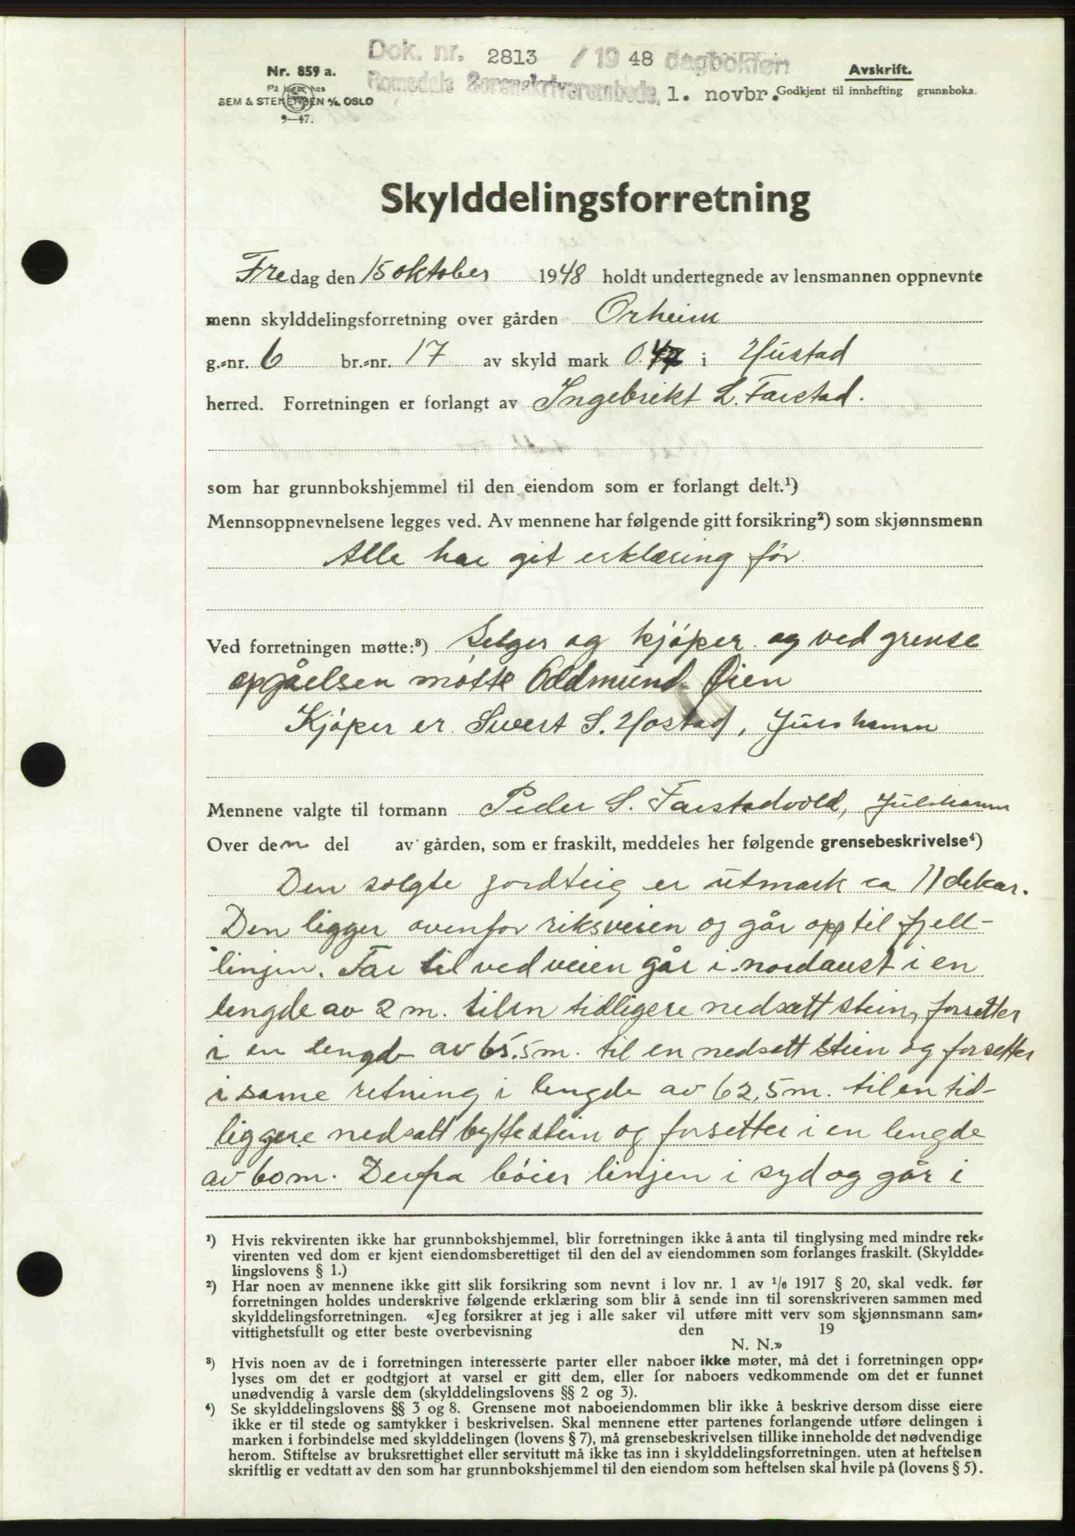 Dok. nr. 2813 / 1948 dagboken
Nr. 859 a. Avskrift.
Romsdals Sorenskriverembede, 1. novbr. Godkjent til innhefting grunnboka.
På lager hos
SEM & STENERSEN A/S, OSLO
9—47.
Skylddelingsforretning
Fredag den 15 oktober 1948 holdt undertegnede av lensmannen oppnevnte
menn skylddelingsforretning over gården Orheim
g.-nr. 6 br.-nr. 17 av skyld mark 0.47 i Hustad
herred. Forretningen er forlangt av Ingebrikt L. Farstad.
som har grunnbokshjemmel til den eiendom som er forlangt delt.¹)
Mennsoppnevnelsene legges ved. Av mennene har følgende gitt forsikring²) som skjønnsmenn
Alle har git erklæring før
Ved forretningen møtte:³) Selger og kjøper og ved grense
opgåelsen møtte Oddmund Øien
Kjøper er Sivert S. Hostad, Julshamn
Mennene valgte til formann Peder S. Farstadvold, Julshamn
Over den del av gården, som er fraskilt, meddeles her følgende grensebeskrivelse⁴)
Den solgte jordteig er utmark ca 11 dekar.
Den ligger ovenfor riksveien og går opp til fjell-
linjen. Tar til ved veien går i nordaust i en
lengde av 2 m. til en tidligere nedsatt stein, forsetter
i en lengde av 65.5 m. til en nedsatt stien og forsetter
i same retning i lengde av 62,5 m. til en tid-
liggere nedsatt byttestein og forsetter i en lengde
av 60 m. Derfra bøier linjen i syd og går i
¹) Hvis rekvirenten ikke har grunnbokshjemmel, blir forretningen ikke å anta til tinglysing med mindre rek-
virenten ved dom er kjent eiendomsberettiget til den del av eiendommen som forlanges fraskilt. (Skyldde-
lingslovens § 1.)
²) Har noen av mennene ikke gitt slik forsikring som nevnt i lov nr. 1 av 1/6 1917 § 20, skal vedk. før
forretningen holdes underskrive følgende erklæring som blir å sende inn til sorenskriveren sammen med
skylddelingsforretningen. «Jeg forsikrer at jeg i alle saker vil utføre mitt verv som skjønnsmann sam-
vittighetsfullt og etter beste overbevisning den 19
N. N.»
³) Hvis noen av de i forretningen interesserte parter eller naboer ikke møter, må det i forretningen opp-
lyses om det er godtgjort at varsel er gitt dem, eller for naboers vedkommende om det er funnet
unødvendig å varsle dem (skylddelingslovens §§ 2 og 3).
⁴) Se skylddelingslovens §§ 3 og 8. Grensene mot naboeiendommen blir ikke å beskrive dersom disse eiere
ikke er til stede og samtykker i beskrivelsen. Skal mennene etter partenes forlangende utføre delingen i
marken i forbindelse med skylddelingen (lovens § 7), må grensebeskrivelsen tillike inneholde det nødvendige
herom. Stiftelse av bruksrettighet eller servitutt må ikke tas inn i skylddelingsforretningen. uten at heftelsen
skriftlig er vedtatt av den som har grunnbokshjemmel til den eiendom som heftelsen skal hvile på (lovens § 5).